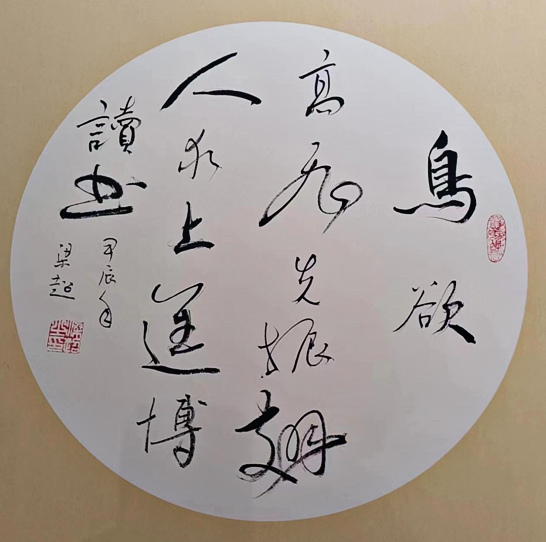 鳥欲
高飛先振翅
人求上進博
讀書
甲辰年
梁超